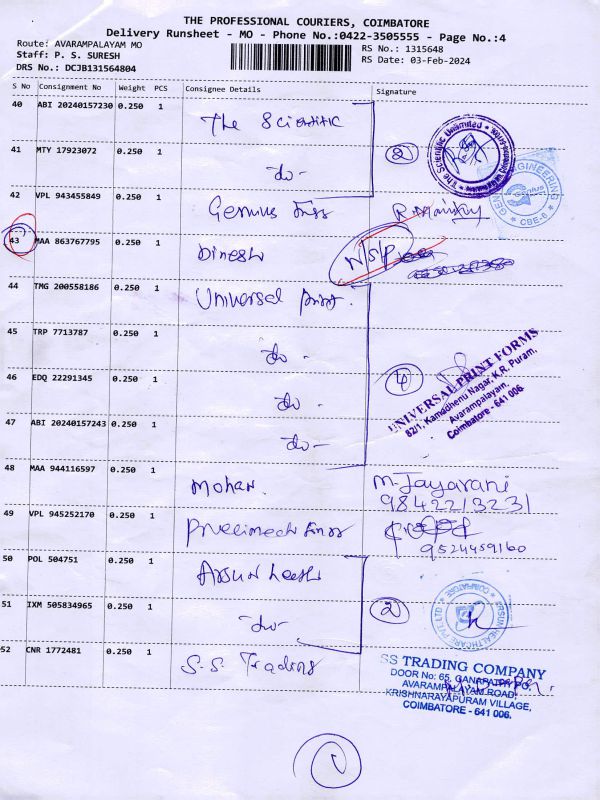 THE PROFESSIONAL COURIERS, COIMBATORE
Delivery Runsheet - MO - Phone No.:0422-3505555 - Page No.:4
Route: AVARAMPALAYAM MO
RS No.: 1315648
Staff: P. S. SURESH
RS Date: 03-Feb-2024
DRS No.: DCJB131564804
S No Consignment No Weight PCS Consignee Details Signature
40 ABI 20240157230 0.250 1 The Scientific
41 MTY 17923072 0.250 1 do- 2
The Scientific Unlimited
ENGINEERING
CBE-6
42 VPL 943455849 0.250 1 Genius Engg
43 MAA 863767795 0.250 1 Dinesh N/S/P
44 TMG 200558186 0.250 1 Universal Print.
45 TRP 7713787 0.250 1 do-
46 EDQ 22291345 0.250 1 do- 4
UNIVERSAL PRINT FORMS
82/1, Kamadhenu Nagar, K.R. Puram,
Avarampalayam,
Coimbatore - 641 006.
47 ABI 20240157243 0.250 1 do-
48 MAA 944116597 0.250 1 Mohan. M. Jayarani
9842213231
49 VPL 945252170 0.250 1
9524459160
50 POL 504751 0.250 1
51 IXM 505834965 0.250 1 do- 2
COIMBATORE
HEALTHCARE PVT LTD
52 CNR 1772481 0.250 1 S.S. Trading
SS TRADING COMPANY
DOOR No: 65, GANAPATHY PO,
AVARAMPALAYAM ROAD,
KRISHNARAYAPURAM VILLAGE,
COIMBATORE - 641 006.